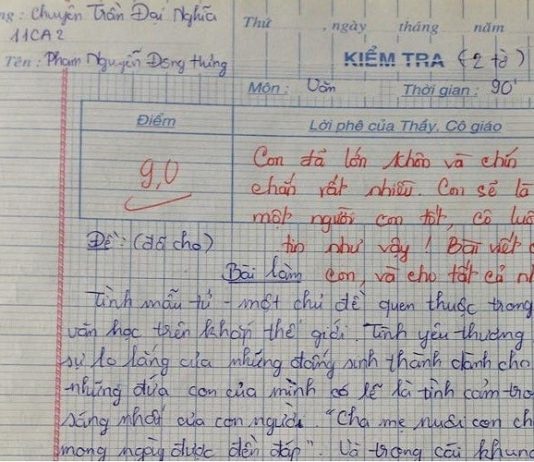 ng: Chuyên Trần Đại Nghĩa
11CA2
Tên: Phạm Nguyễn Đông thùng
Thứ , ngày tháng năm
KIỂM TRA (2 tờ)
Môn: Văn Thời gian: 90'
Điểm
Lời phê của Thầy, Cô giáo
9,0
Con đã lớn khôn và chín
chắn rất nhiều. Con sẽ là
một người con tốt, cô luô
tin như vậy! Bài viết c
con, và cho tất cả n
Đề: (đã cho)
Bài làm
Tình mẫu tử - một chủ đề quen thuộc trong
văn học trên khắp thế giới. Tình yêu thương
sự lo lắng của những đấng sinh thành dành cho
những đứa con của mình có lẽ là tình cảm tro
sáng nhất của con người. "Cha mẹ nuôi con ch
mong ngày được đền đáp". Và trong cái khung